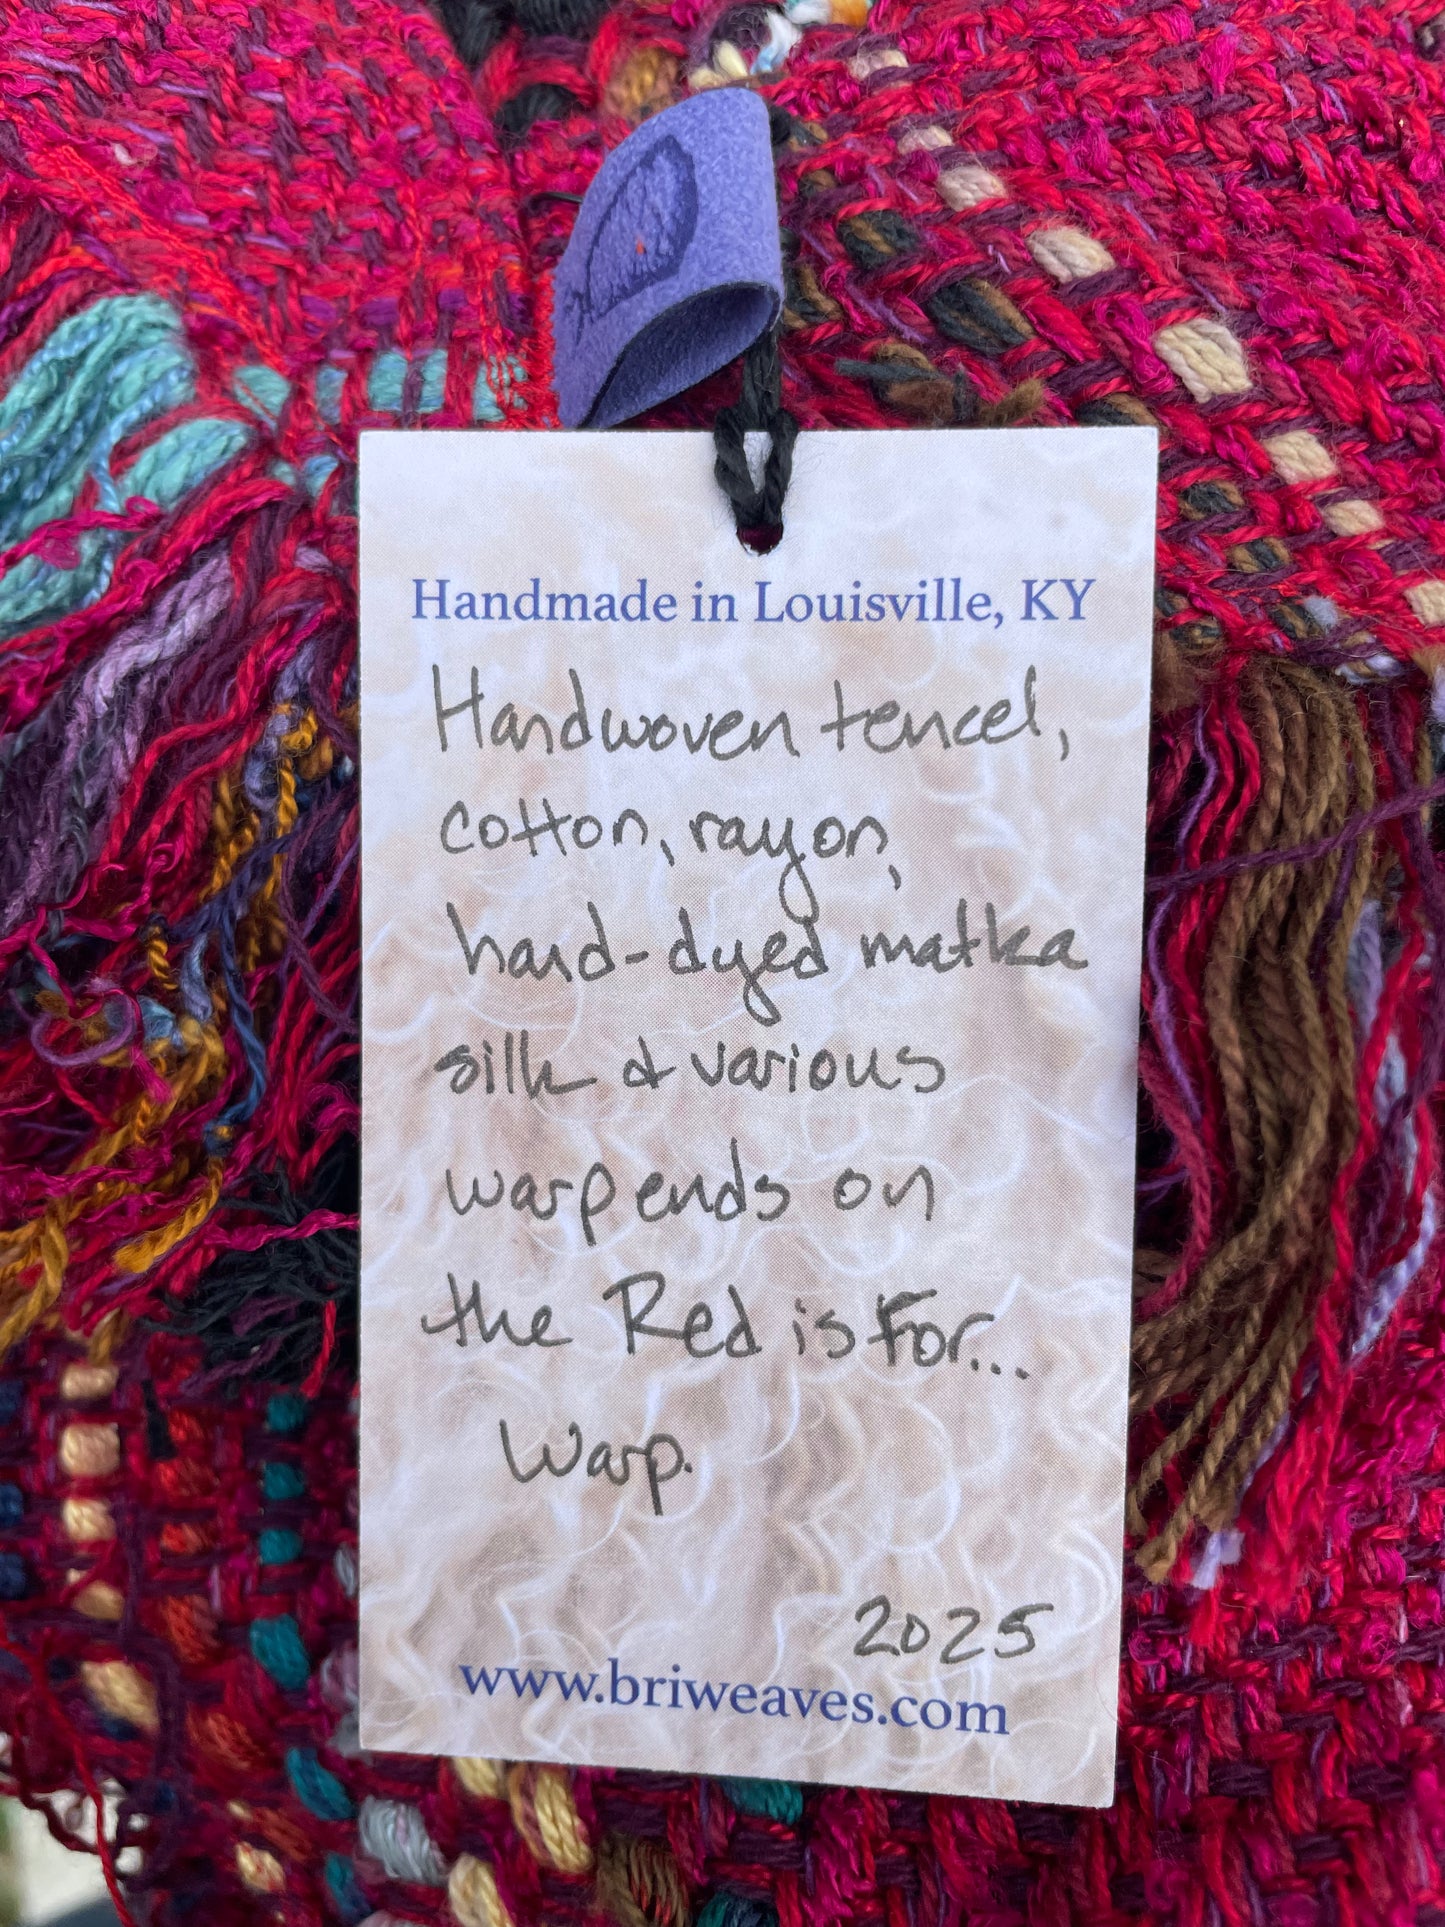 Handmade in Louisville, KY
Handwoven tencel,
cotton, rayon,
hand-dyed matka
silk & various
warp ends on
the Red is For...
Warp.
2025
www.briweaves.com